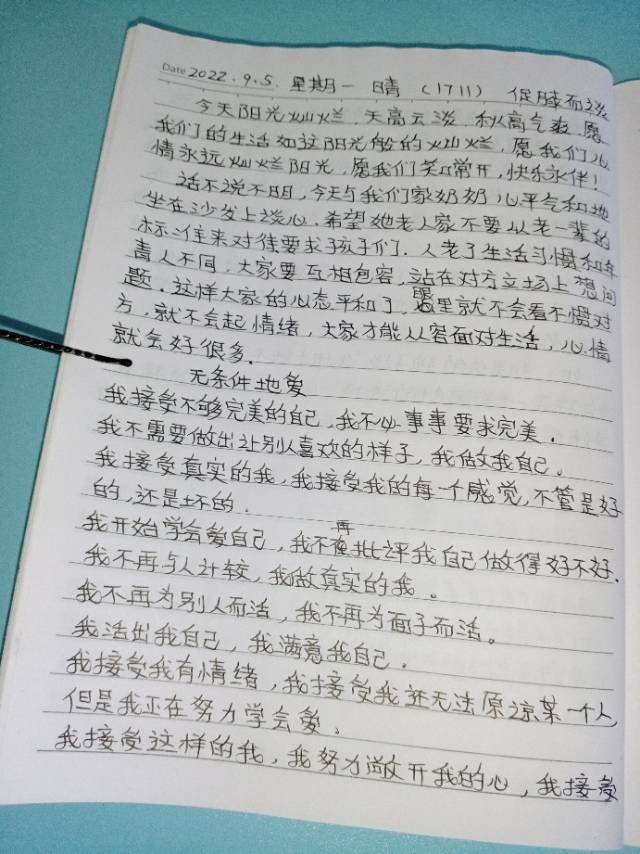 Date 2022.9.5. 星期一 晴 (1711) 促膝而谈
今天阳光灿烂,天高云淡,秋高气爽,愿
我们的生活如这阳光般的灿烂,愿我们心
情永远灿烂阳光,愿我们笑口常开,快乐永伴!
话不说不明,今天与我们家奶奶心平气和地
坐在沙发上谈心,希望她老人家不要以老一辈的
标准来对待要求孩子们.人老了生活习惯和年
青人不同,大家要互相包容,站在对方立场上想问
题.这样大家的心态平和了,眼里就不会看不惯对
方,就不会起情绪,大家才能从容面对生活,心情
就会好很多.
无条件地爱
我接受不够完美的自己,我不必事事要求完美.
我不需要做出让别人喜欢的样子,我做我自己。
我接受真实的我,我接受我的每一个感觉,不管是好
的,还是坏的.
我开始学会爱自己,我不再批评我自己做得好不好.
我不再与人计较,我做真实的我。
我不再为别人而活,我不再为面子而活。
我活出我自己,我满意我自己.
我接受我有情绪,我接受我还无法原谅某一个人,
但是我正在努力学会爱、
我接受这样的我,我努力敞开我的心,我接受